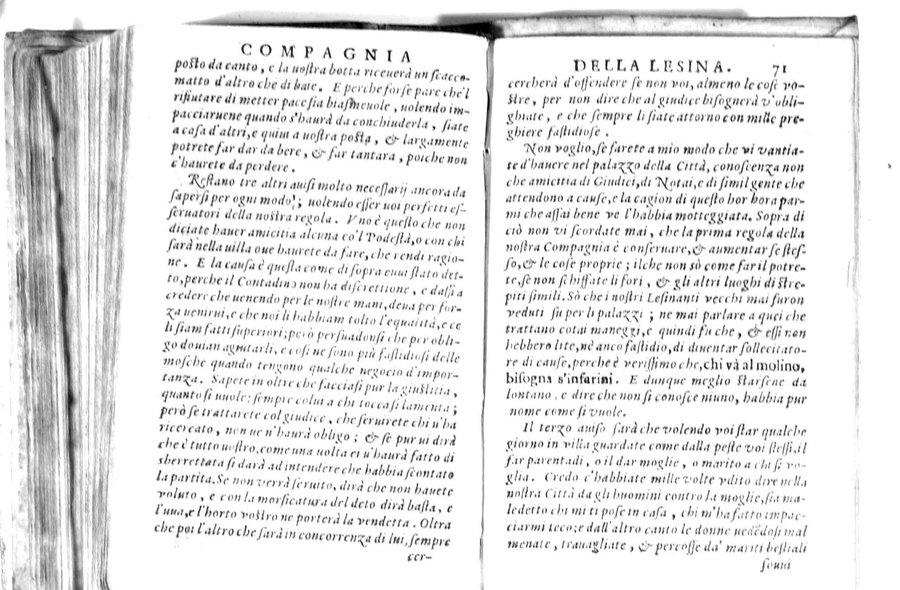 COMPAGNIA
posto da canto, e la uostra botta riceuerà un scacco
matto d'altro che di baie. E perche forse pare che'l
rifiutare di metter pace sia biasmeuole, uolendo im-
pacciaruene quando s'haurà da conchiuderla, siate
a casa d'altri, e quiui a uostra posta, & largamente
potrete far dar da bere, & far tantara, poiche non
c'haurete da perdere.
Restano tre altri auisi molto necessarij ancora da
sapersi per ogni modo; uolendo esser uoi perfetti es-
seruatori della nostra regola. Vno è questo che non
diciate hauer amicitia alcuna co'l Podestà, o con chi
sarà nella uilla oue haurete da fare, che rendi ragio-
ne. E la causa è questa come di sopra euui stato det-
to, perche il Contadino non ha discrettione, e dassi a
credere che uenendo per le nostre mani, deua per for-
za uenirui, e che noi li habbiam tolto l'equalità, e ce
li siam fatti superiori; però persuadousi che per obli-
go douian agiutarli, e cosi ne sono più fastidiosi delle
mosche quando tengono qualche negocio d'impor-
tanza. Sapete in oltre che facciasi pur la giustitia,
quanto si uuole: sempre colui a chi tocca si lamenta;
però se trattarete col giudice, che seruirete chi u'ha
ricercato, non ue n'haurà obligo; & se pur ui dirà
che è tutto uostro, come una uolta ei u'haurà fatto di
sberrettata si darà ad intendere che habbia scontato
la partita. Se non verrà seruito, dirà che non hauete
voluto, e con la morsicatura del deto dirà basta, e
l'uua, e l'horto vostro ne porterà la vendetta. Oltra
che poi l'altro che sarà in concorrenza di lui, sempre
cer-
DELLA LESINA. 71
cercherà d'offendere se non voi, almeno le cose vo-
stre, per non dire che al giudice bisognerà v'obli-
ghiate, e che sempre li siate attorno con mille pre-
ghiere fastidiose.
Non voglio, se farete a mio modo che vi vantia-
te d'hauere nel palazzo della Città, conoscenza non
che amicitia di Giudici, di Notai, e di simil gente che
attendono a cause, e la cagion di questo hor hora par-
mi che assai bene ve l'habbia motteggiata. Sopra di
ciò non vi scordate mai, che la prima regola della
nostra Compagnia è conseruare, & aumentar se stes-
so, & le cose proprie; ilche non sò come far il potre-
te, se non schiffate li fori, & gli altri luoghi di stre-
piti simili. Sò che i nostri Lesinanti vecchi mai furon
veduti su per li palazzi; ne mai parlare a quei che
trattano cotai maneggi, e quindi fu che, & essi non
hebbero lite, nè anco fastidio, di diuentar sollecitato-
re di cause, perche è verissimo che, chi và al molino,
bisogna s'infarini. E dunque meglio starsene da
lontano, e dire che non si conosce niuno, habbia pur
nome come si vuole.
Il terzo auiso sarà che volendo voi star qualche
giorno in villa guardate come dalla peste voi stessi, il
far parentadi, o il dar moglie, o marito a chi si vo-
glia. Credo c'habbiate mille volte vdito dire nella
nostra Città da gli huomini contro la moglie, sia ma-
ledetto chi mi ti pose in casa, chi m'ha fatto impac-
ciarmi teco; e dall'altro canto le donne uedẽdosi mal
menate, trauagliate, & percosse da' mariti bestiali
souui